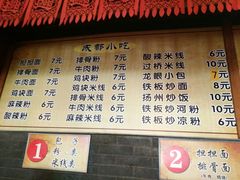 成都小吃
担担面 7元
排骨面 7元
牛肉面 7元
鸡块面 7元
鸡块米线 7元
麻辣粉 6元
酸辣粉 6元
排骨粉 7元
牛肉粉 7元
鸡块粉 7元
排骨米线 7元
牛肉米线 7元
麻辣米线 6元
酸辣米线 6元
过桥米线 10元
龙眼小包 7元
铁板炒面 8元
扬州炒饭 6元
铁板炒粉 6元
铁板炒凉粉 6元
1
包 各
粉 类
米线类
2
担担面
排骨面